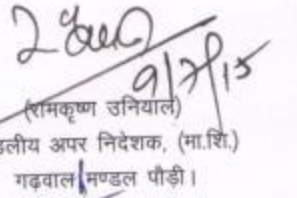 9/7/15
(रामकृष्ण उनियाल)
डलीय अपर निदेशक, (मा.शि.)
गढवाल मण्डल पौड़ी।